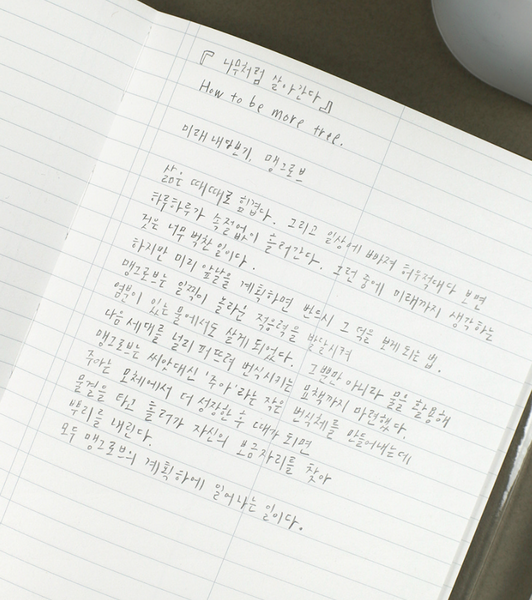 『나무처럼 살아간다』
How to be more tree.
미래 내다보기, 맹그로브
삶은 때때로 힘겹다. 그리고 일상에 빠져 허우적대다 보면
하루하루가 속절없이 흘러간다. 그런 중에 미래까지 생각하는
것은 너무 벅찬 일이다.
하지만 미리 앞날을 계획하면 반드시 그 덕을 보게 되는 법.
맹그로브는 일찍이 놀라운 적응력을 발달시켜
염분이 있는 물에서도 살게 되었다. 그뿐만 아니라 물을 활용해
다음 세대를 널리 퍼뜨려 번식시키는 묘책까지 마련했다.
맹그로브는 씨앗대신 '주아'라는 작은 번식체를 만들어내는데
주아는 모체에서 더 성장한 후 때가 되면
물결을 타고 흘러가 자신의 보금자리를 찾아
뿌리를 내린다.
모두 맹그로브의 계획하에 일어나는 일이다.